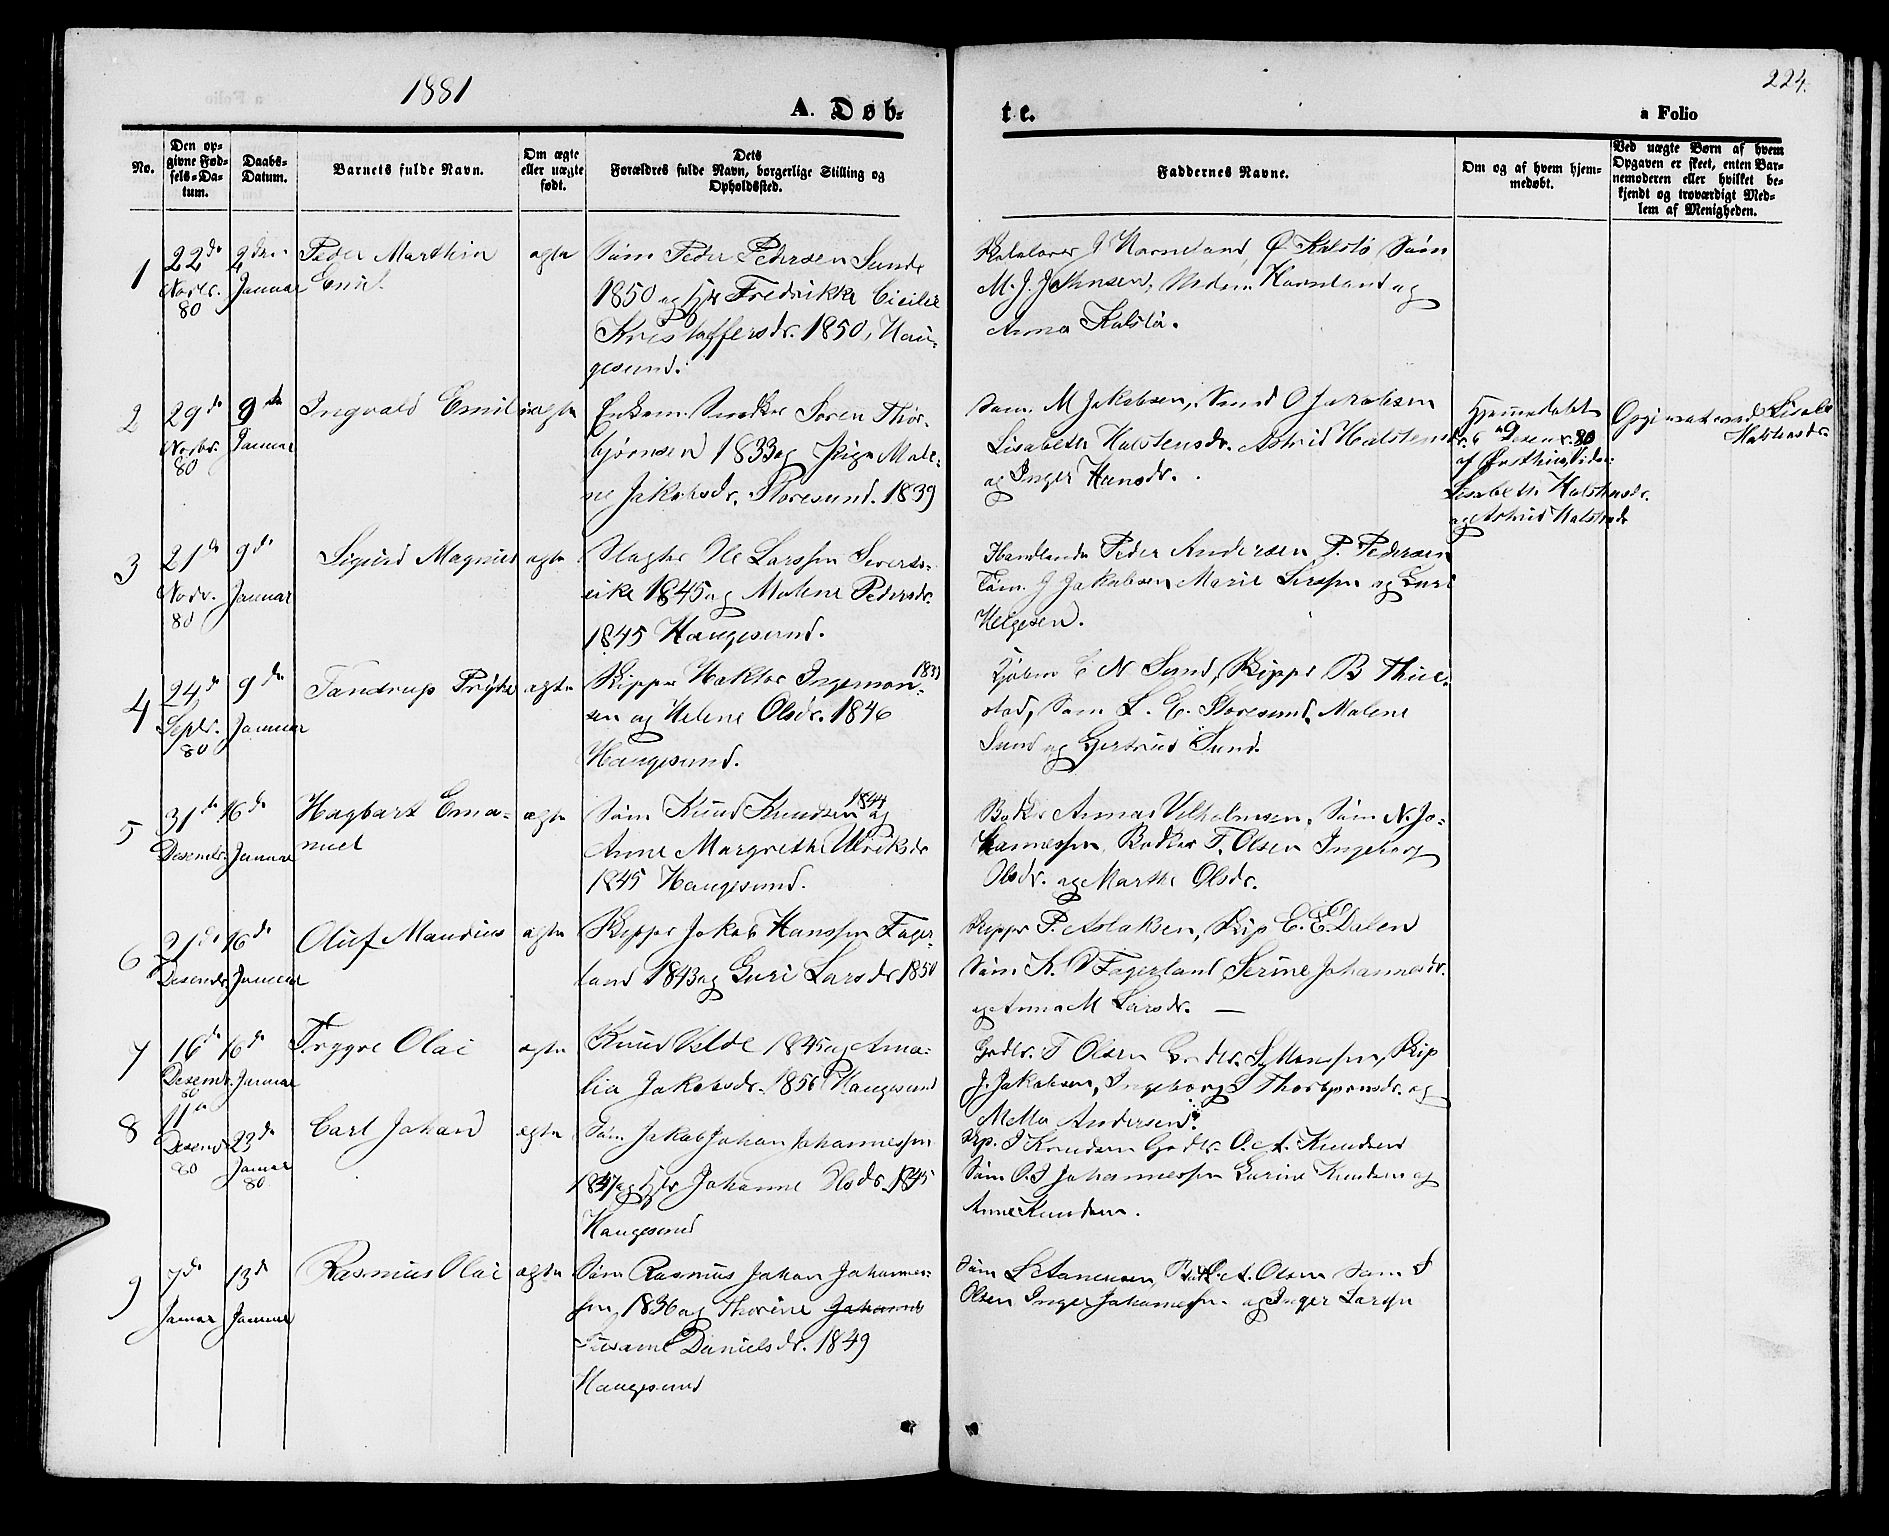 1881
224.
A. Døb-
te.
a Folio
No.
Den op-
givne Fød-
sels-Da-
tum.
Daabs-
Datum.
Barnets fulde Navn.
Om ægte
eller uægte
født.
Dets
Forældres fulde Navn, borgerlige Stilling og
Opholdssted.
Faddernes Navne.
Om og af hvem hjem-
medøbt.
Ved uægte Børn af hvem
Opgaven er skeet, enten Bar-
nemoderen eller hvilket be-
kjendt og troværdigt Med-
lem af Menigheden.
1
22de
Novbr.
80
2den
Januar
Peder Marthin
Emil
ægte
Søm Peder Pedersen Sunde
1850 og Hstr Fredrikke Cicilie
Kristoffersdr. 1850, Hau-
gesund.
J Havneland, Ø Kalstø, Søm
M. J. Johnsen, Havneland og
Anna Kalstø.
2
29de
Novbr.
80
9de
Januar
Ingvald Emil
uægte
Enkem. Snedker Søren Thor-
bjørnsen 1833 og Pige Male-
ne Jakobsdr. Storesund. 1839
Søm. M Jakobsen, Smed O Jakobsen
Lisabeth Halstensdr. Astrid Halstensdr.
og Inger Hansdr.
Hjemmedøbt
9 Desemr. 80
af
Lisabeth Halstensdr.
og Astrid Halstensdr
Opgivet ved Lisabet
Halstensdr.
3
21de
Novr.
80
9de
Januar
Sigurd Magnus
ægte
Slagter Ole Larssen Sverts-
vike 1845 og Malene Pedersdr.
1845 Haugesund.
Handlende Peder Andersen P. Pedersen
Tøm. J Jakobsen Marie Larssen og Guri
Helgesen.
4
24de
Septr.
80
9de
Januar
Tandrup Pryts
ægte
Skipper Haktor Ingemon- 1839
sen og Helene Olsdr. 1846
Haugesund.
E N Sund, Skipper B Thue-
stad, Søm L. E. Storesund, Malene
Sund og Gertrud Sund.
5
31de
Desembr.
16de
Januar
Hagbart Ema-
nuel
ægte
Søm Knud Knudsen 1844 og
Anne Margrethe Ulriksdr
1845 Haugesund.
Bøker Annas Vilhelmsen, Søm N. Jo-
hannessen, Bødker T. Olsen Ingeborg
Olsdr. og Marthe Olsdr.
6
21de
Desembr
16de
Januar
Oluf Maudius
ægte
Skipper Jakob Hanssen Fager-
land 1843 og Guri Larsdr 1850
Skipper P. Aslaksen, Skip E. E. Dalen
Søm K. Fagerland Serine Johannesdr.
og Anna M Larsdr. —
7
16de
Desembr.
80
16de
Januar
Trygve Olai
ægte
Knud Velde 1845 og Ama-
lia Jakobsdr. 1856 Haugesund
Grdbr. T Olsen Grdbr. S. Monssen, Skip
J. Jakobsen, Ingeborg Thorbjørnsdr. og
Andersen.
8
11te
Desembr
80
23de
Januar
80
Carl Johan
ægte
Søm Jakob Johan Johannessen
1841 og Hstr Johanne Olsdr. 1845
Haugesund
Skp. J Knudsen Grdbr. O. A. Knudsen
Søm O. J Johannessen Gurine Knudsen og
Anne Knudsen.
9
7de
Januar
13de
Januar
Rasmus Olai
ægte
Søm Rasmus Johan Johannes-
sen, 1836 og Thorine Johannes
Susanne Danielsdr. 1849
Haugesund
Søm L Aanensen, A. Olsen Søm S
Olsen Inger Johannessen og Inger Larsen